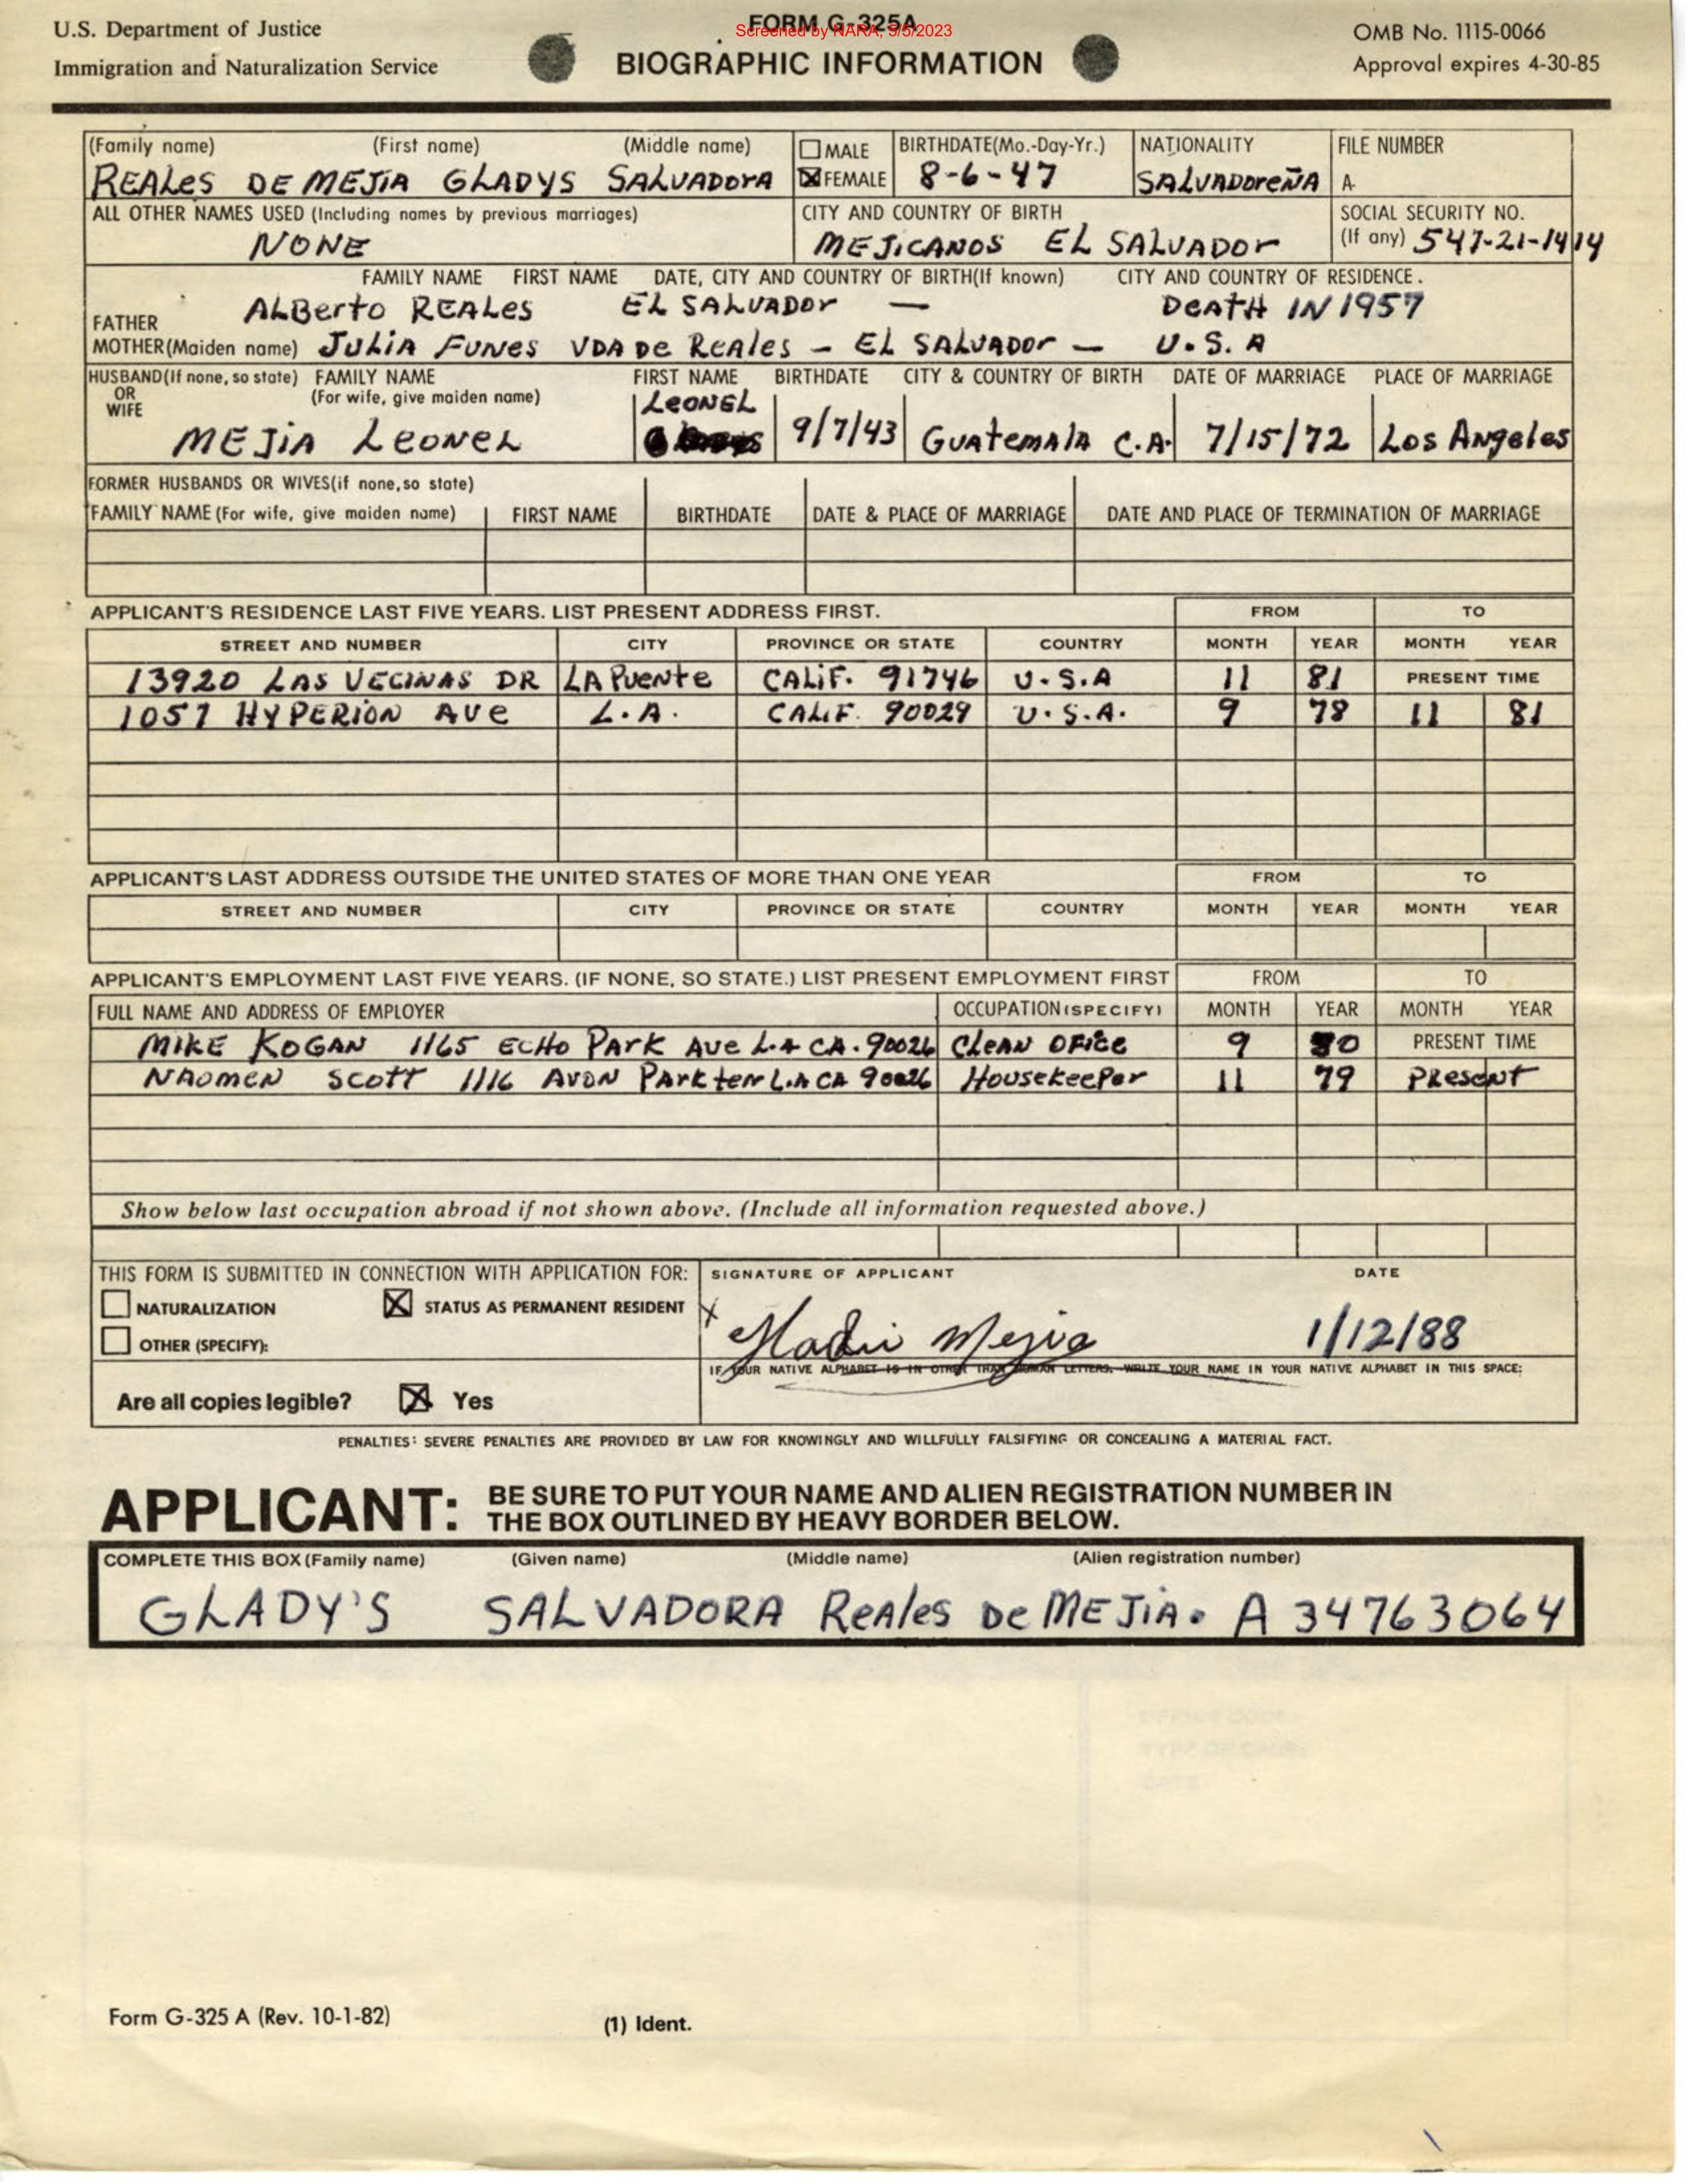 U.S. Department of Justice
Immigration and Naturalization Service
FORM G-325A
Screened by NARA, 5/5/2023
BIOGRAPHIC INFORMATION
OMB No. 1115-0066
Approval expires 4-30-85
(Family name) (First name) (Middle name) MALE BIRTHDATE(Mo.-Day-Yr.) NATIONALITY FILE NUMBER
REALES DE MEJIA GLADYS SALVADORA FEMALE 8-6-47 SALVADOREÑA A-
ALL OTHER NAMES USED (Including names by previous marriages) CITY AND COUNTRY OF BIRTH SOCIAL SECURITY NO.
NONE MEJICANOS EL SALVADOR (If any) 547-21-1414
FAMILY NAME FIRST NAME DATE, CITY AND COUNTRY OF BIRTH(If known) CITY AND COUNTRY OF RESIDENCE.
FATHER ALBerto REALES EL SALVADOR — DEATH IN 1957
MOTHER(Maiden name) JULIA FUNES VDA DE REALES - EL SALVADOR — U.S.A
HUSBAND(If none, so state) FAMILY NAME FIRST NAME BIRTHDATE CITY & COUNTRY OF BIRTH DATE OF MARRIAGE PLACE OF MARRIAGE
OR (For wife, give maiden name) LEONEL
WIFE
MEJIA LEONEL 9/7/43 GUATEMALA C.A. 7/15/72 Los Angeles
FORMER HUSBANDS OR WIVES(if none,so state)
FAMILY NAME (For wife, give maiden name) FIRST NAME BIRTHDATE DATE & PLACE OF MARRIAGE DATE AND PLACE OF TERMINATION OF MARRIAGE
APPLICANT'S RESIDENCE LAST FIVE YEARS. LIST PRESENT ADDRESS FIRST. FROM TO
STREET AND NUMBER CITY PROVINCE OR STATE COUNTRY MONTH YEAR MONTH YEAR
13920 LAS VECINAS DR LA PUENTE CALIF. 91746 U.S.A 11 81 PRESENT TIME
1057 HYPERION AVE L.A. CALIF. 90029 U.S.A. 9 78 11 81
APPLICANT'S LAST ADDRESS OUTSIDE THE UNITED STATES OF MORE THAN ONE YEAR FROM TO
STREET AND NUMBER CITY PROVINCE OR STATE COUNTRY MONTH YEAR MONTH YEAR
APPLICANT'S EMPLOYMENT LAST FIVE YEARS. (IF NONE, SO STATE.) LIST PRESENT EMPLOYMENT FIRST FROM TO
FULL NAME AND ADDRESS OF EMPLOYER OCCUPATION(SPECIFY) MONTH YEAR MONTH YEAR
MIKE KOGAN 1165 ECHO PARK AVE L.A CA. 90026 CLEAN OFICE 9 80 PRESENT TIME
NAOMEN SCOTT 1116 AVON PARK terr L.A CA 90026 HOUSEKEEPER 11 79 PRESENT
Show below last occupation abroad if not shown above. (Include all information requested above.)
THIS FORM IS SUBMITTED IN CONNECTION WITH APPLICATION FOR: SIGNATURE OF APPLICANT DATE
NATURALIZATION STATUS AS PERMANENT RESIDENT
OTHER (SPECIFY): Mejia 1/12/88
IF YOUR NATIVE ALPHABET IS IN OTHER THAN ROMAN LETTERS, WRITE YOUR NAME IN YOUR NATIVE ALPHABET IN THIS SPACE:
Are all copies legible? Yes
PENALTIES: SEVERE PENALTIES ARE PROVIDED BY LAW FOR KNOWINGLY AND WILLFULLY FALSIFYING OR CONCEALING A MATERIAL FACT.
APPLICANT: BE SURE TO PUT YOUR NAME AND ALIEN REGISTRATION NUMBER IN
THE BOX OUTLINED BY HEAVY BORDER BELOW.
COMPLETE THIS BOX (Family name) (Given name) (Middle name) (Alien registration number)
GLADY'S SALVADORA REALES DE MEJIA. A 34763064
Form G-325 A (Rev. 10-1-82)
(1) Ident.